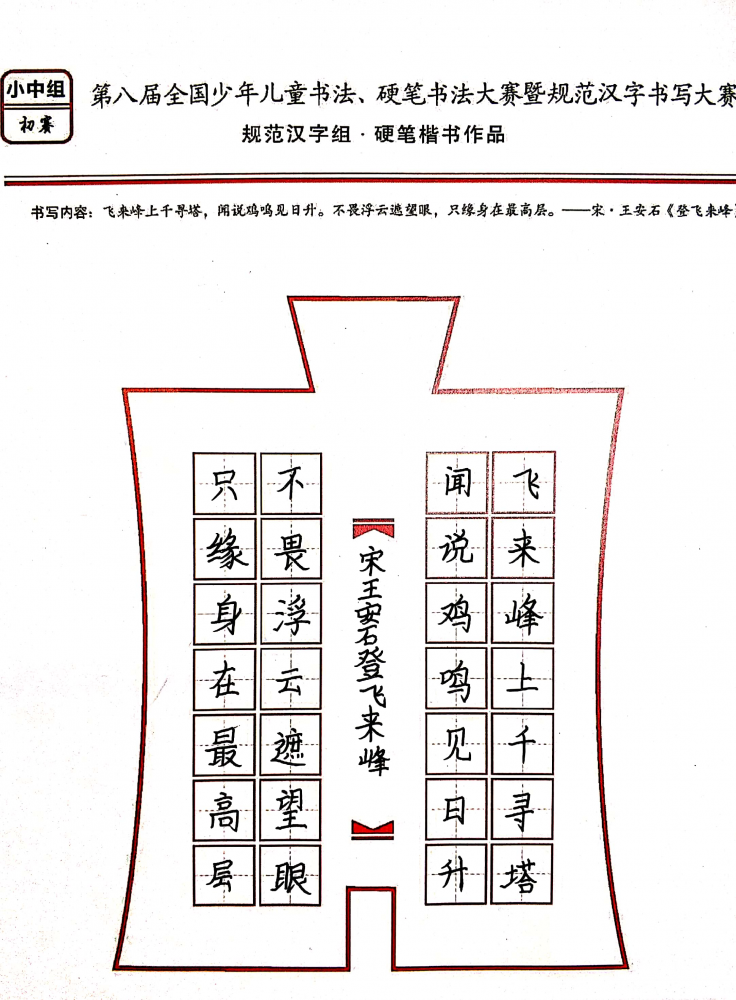 小中组
初赛
第八届全国少年儿童书法、硬笔书法大赛暨规范汉字书写大赛
规范汉字组·硬笔楷书作品
书写内容：飞来峰上千寻塔，闻说鸡鸣见日升。不畏浮云遮望眼，只缘身在最高层。——宋·王安石《登飞来峰》
飞来峰上千寻塔
闻说鸡鸣见日升
宋王安石登飞来峰
不畏浮云遮望眼
只缘身在最高层